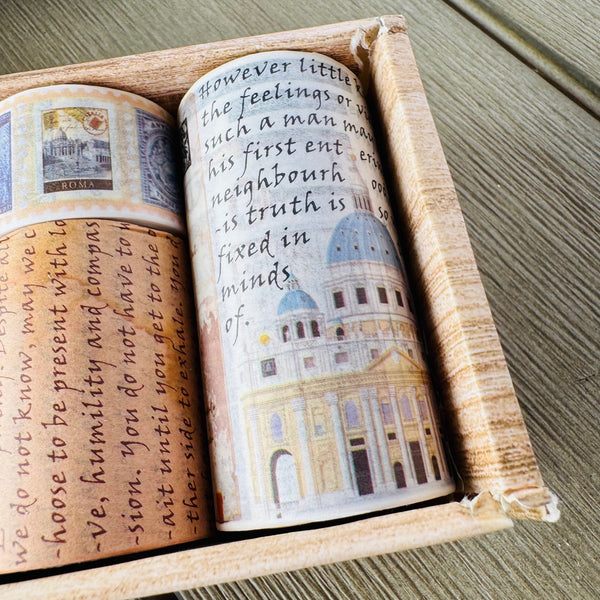 However little
the feelings or
such a man may
his first ent
neighbourh
-is truth is
fixed in
minds
of.
so
ROMA
we do not know, may we c
-hoose to be present with lo
-ve, humility and compas
-sion. You do not have to w
-ait until you get to the o
-ther side to exhale. You d